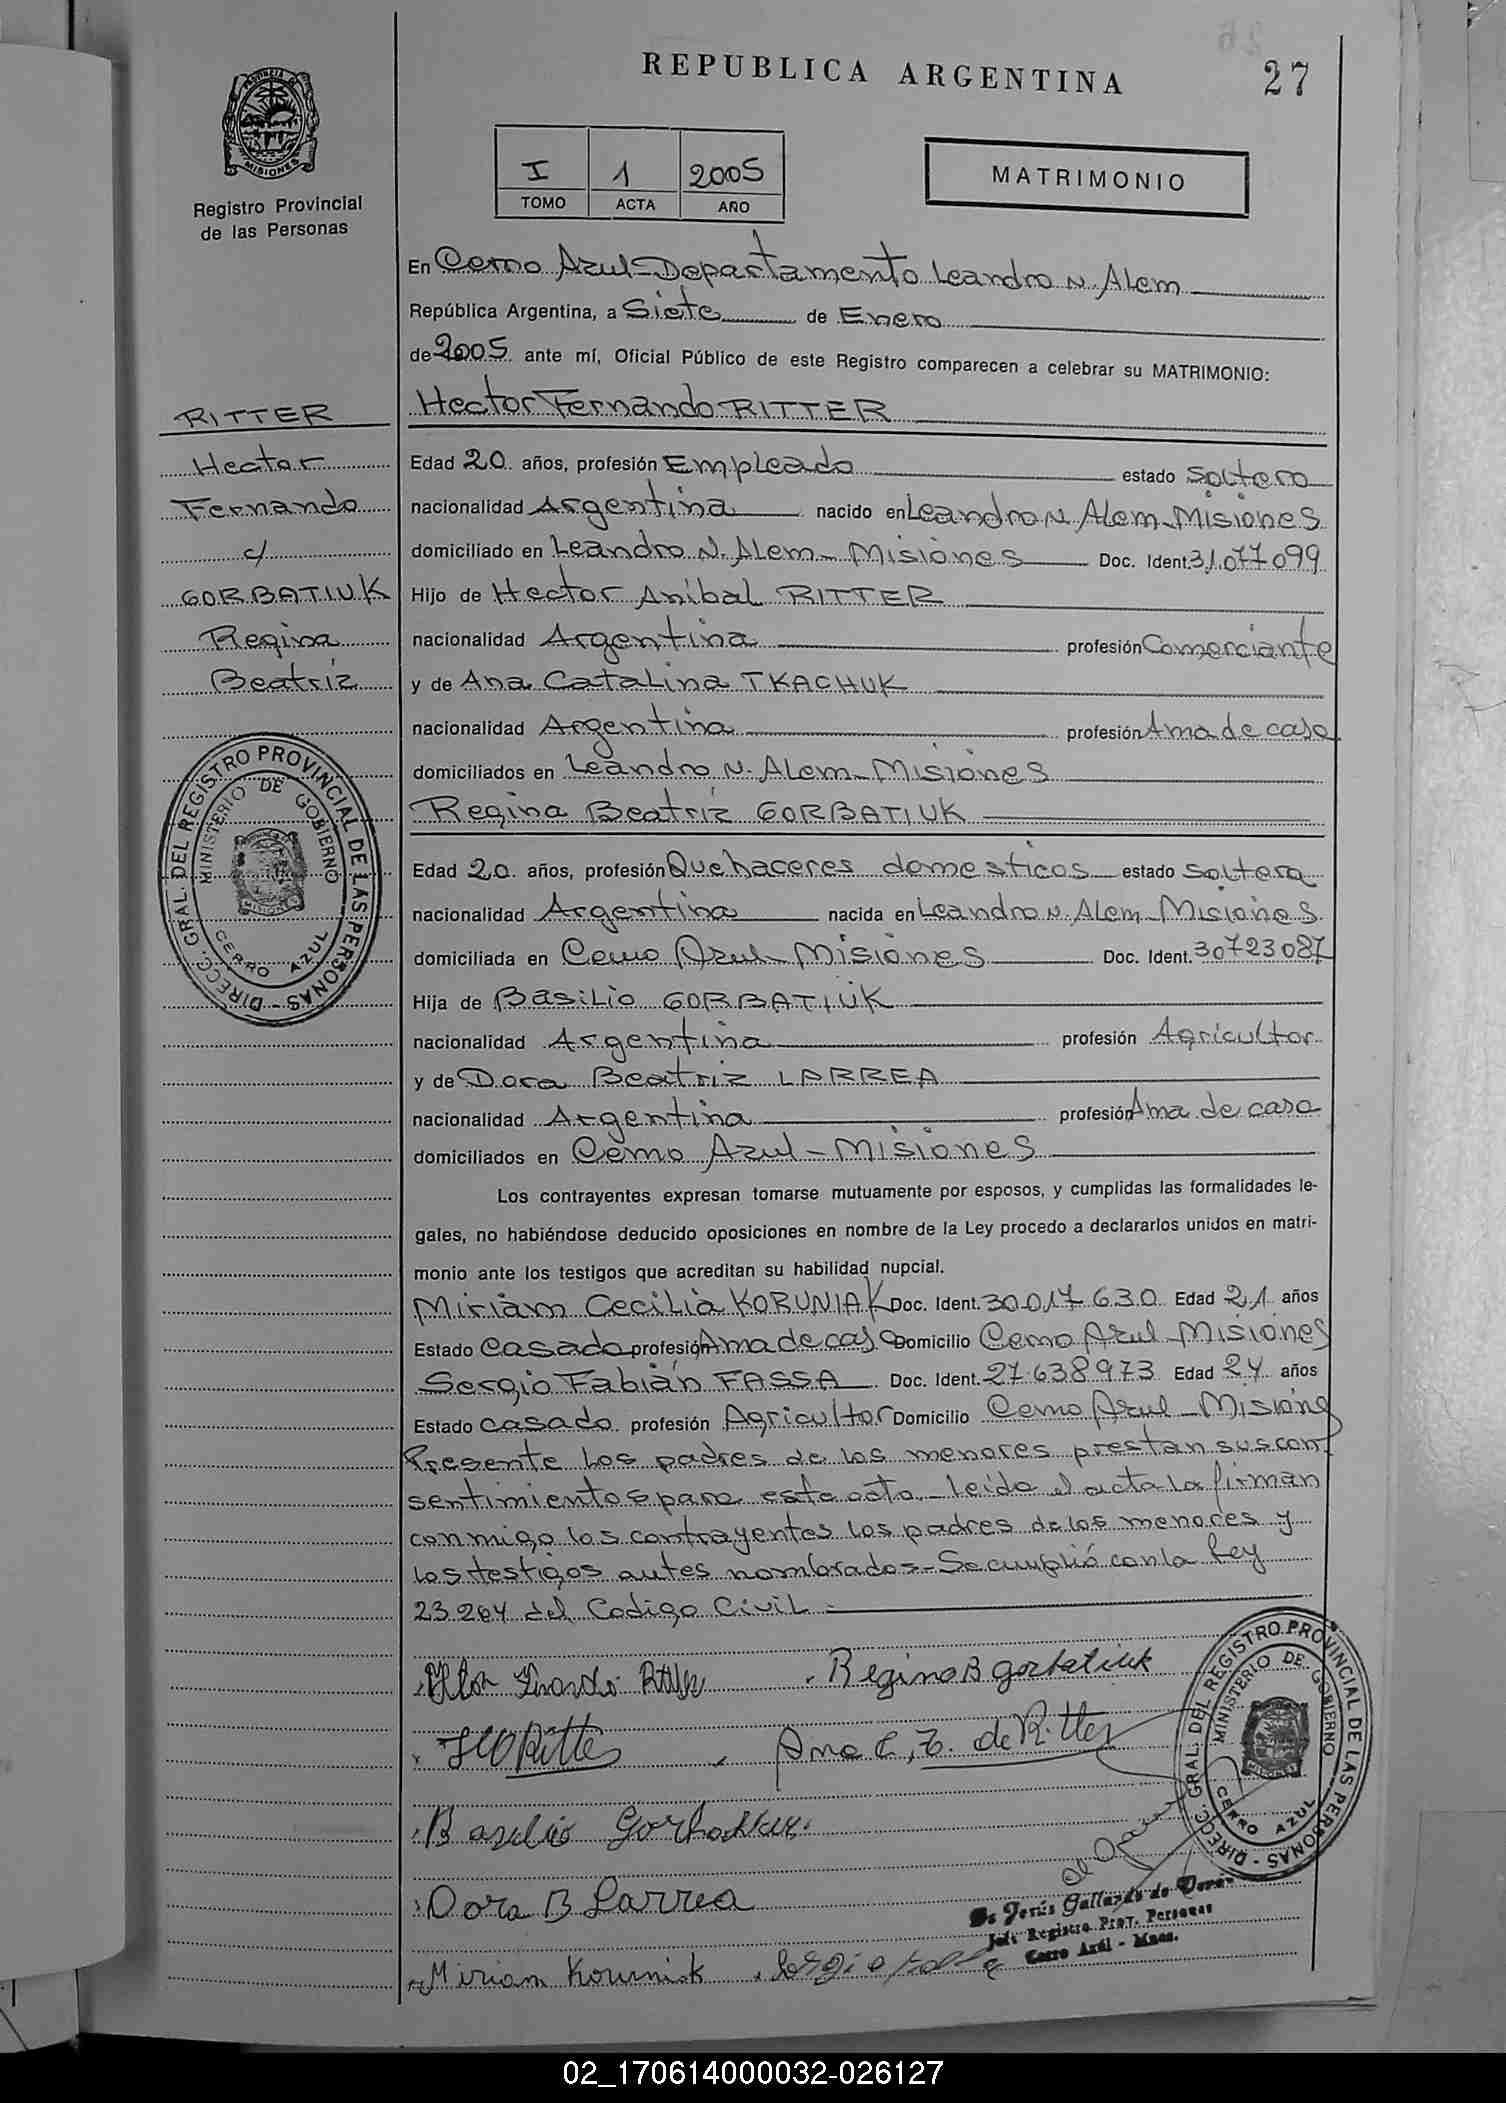 REPUBLICA ARGENTINA
27
PROVINCIA DE
MISIONES
Registro Provincial
de las Personas
I 1 2005
TOMO ACTA AÑO
MATRIMONIO
En Cerro Azul-Departamento Leandro N. Alem
República Argentina, a Siete de Enero
de 2005 ante mí, Oficial Público de este Registro comparecen a celebrar su MATRIMONIO:
RITTER
Hector
Fernando
c/
GORBATIUK
Regina
Beatriz
Hector Fernando RITTER
Edad 20 años, profesión Empleado estado soltero
nacionalidad Argentina nacido en Leandro N. Alem-Misiones
domiciliado en Leandro N. Alem-Misiones Doc. Ident. 31.077.099
Hijo de Hector Anibal RITTER
nacionalidad Argentina profesión Comerciante
y de Ana Catalina TKACHUK
nacionalidad Argentina profesión Ama de casa
domiciliados en Leandro N. Alem-Misiones
Regina Beatriz GORBATIUK
Edad 20 años, profesión Quehaceres domesticos estado soltera
nacionalidad Argentina nacida en Leandro N. Alem-Misiones
domiciliada en Cerro Azul-Misiones Doc. Ident. 30723087
Hija de Basilio GORBATIUK
nacionalidad Argentina profesión Agricultor
y de Dora Beatriz LARREA
nacionalidad Argentina profesión Ama de casa
domiciliados en Cerro Azul-Misiones
Los contrayentes expresan tomarse mutuamente por esposos, y cumplidas las formalidades le-
gales, no habiéndose deducido oposiciones en nombre de la Ley procedo a declararlos unidos en matri-
monio ante los testigos que acreditan su habilidad nupcial.
Miriam Cecilia KORUNIAK Doc. Ident. 30.017.630 Edad 21 años
Estado Casado profesión Ama de casa Domicilio Cerro Azul-Misiones
Sergio Fabián FASSA Doc. Ident. 27.638.973 Edad 24 años
Estado casado profesión Agricultor Domicilio Cerro Azul-Misiones
Presente los padres de los menores prestan sus con
sentimientos para este acto-leida el acta la firman
conmigo los contrayentes los padres de los menores y
los testigos antes nombrados-Se cumplió con la Ley
23.264 del Codigo Civil.
DIRECC. GRAL. DEL REGISTRO PROVINCIAL DE LAS PERSONAS
MINISTERIO DE GOBIERNO
MISIONES
CERRO AZUL
Regina B Gorbatiuk
Ana C. T. de Ritter
Basilio
Dora B Larrea
Miriam
Sergio
DIRECC. GRAL. DEL REGISTRO PROVINCIAL DE LAS PERSONAS
MINISTERIO DE GOBIERNO
CERRO AZUL
Jesús Gallardo de
Jefe Registro Prov. Personas
Cerro Azúl - Mnes.
02_170614000032-026127